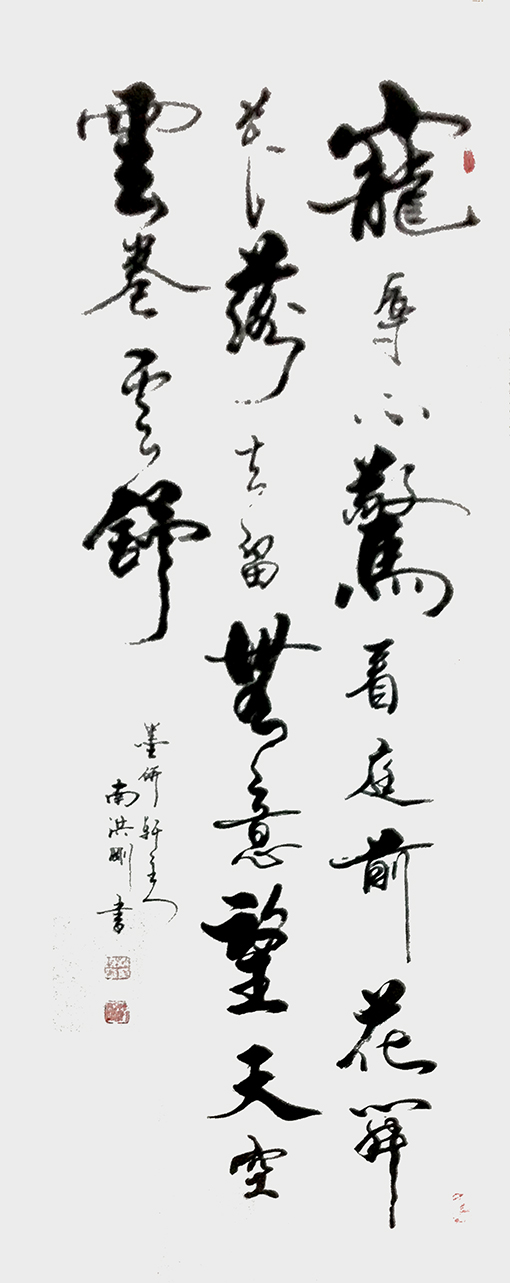 寵辱不驚看庭前花開
花落去留無意望天空
雲卷雲舒
墨研軒主人
南洪剛書